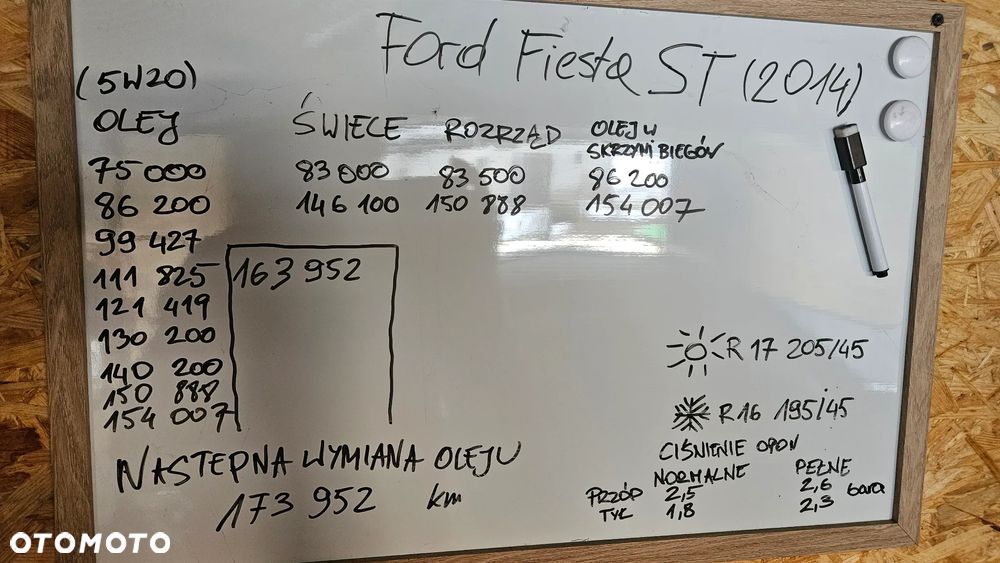 Ford Fiesta ST (2014)
(5W20)
OLEJ
75 000
86 200
99 427
111 825
121 419
130 200
140 200
150 888
154 007
163 952
ŚWIECE
83 000
146 100
ROZRZĄD
83 500
150 888
OLEJ W
SKRZYNI BIEGÓW
86 200
154 007
R 17 205/45
R16 195/45
CIŚNIENIE OPON
NORMALNE PEŁNE
PRZÓD 2,5 2,6 bara
TYŁ 1,8 2,3
NASTEPNA WYMIANA OLEJU
173 952 km
OTOMOTO